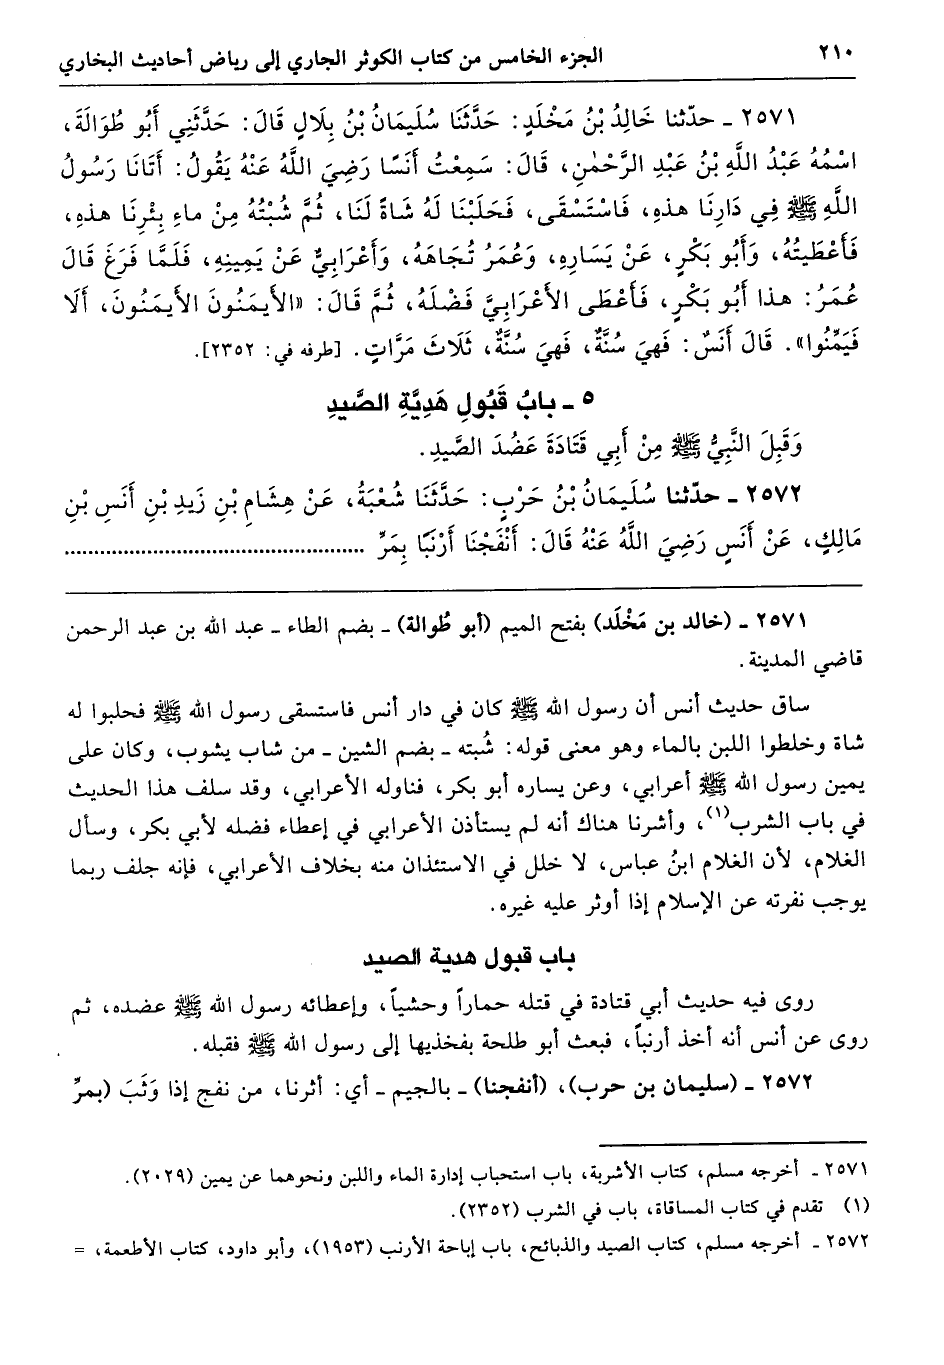 ٢١٠
الجزء الخامس من كتاب الكوثر الجاري إلى رياض أحاديث البخاري
٢٥٧١ ـ حدّثنا خَالِدُ بْنُ مَخْلَدٍ: حَدَّثَنَا سُلَيمَانُ بْنُ بِلَالٍ قَالَ: حَدَّثَنِي أَبُو طُوَالَةَ،
اسْمُهُ عَبْدُ اللَّهِ بْنُ عَبْدِ الرَّحْمٰنِ، قَالَ: سَمِعْتُ أَنَسًا رَضِيَ اللَّهُ عَنْهُ يَقُولُ: أَتَانَا رَسُولُ
اللَّهِ ﷺ فِي دَارِنَا هذهِ، فَاسْتَسْقَى، فَحَلَبْنَا لَهُ شَاةً لَنَا، ثُمَّ شُبْتُهُ مِنْ ماءِ بِئْرِنَا هذهِ،
فَأَعْطَيتُهُ، وَأَبُو بَكْرٍ، عَنْ يَسَارِهِ، وَعُمَرُ تُجَاهَهُ، وَأَعْرَابِيٌّ عَنْ يَمِينِهِ، فَلَمَّا فَرَغَ قَالَ
عُمَرُ: هذا أَبُو بَكْرٍ، فَأَعْطَى الأَعْرَابِيَّ فَضْلَهُ، ثُمَّ قَالَ: «الأَيمَنُونَ الأَيمَنُونَ، أَلَا
فَيَمِّنُوا». قَالَ أَنَسٌ: فَهيَ سُنَّةٌ، فَهيَ سُنَّةٌ، ثَلَاثَ مَرَّاتٍ. [طرفه في: ٢٣٥٢].
٥ ـ بابُ قَبُولِ هَدِيَّةِ الصَّيدِ
وَقَبِلَ النَّبِيُّ ﷺ مِنْ أَبِي قَتَادَةَ عَضُدَ الصَّيدِ.
٢٥٧٢ ـ حدّثنا سُلَيمَانُ بْنُ حَرْبٍ: حَدَّثَنَا شُعْبَةُ، عَنْ هِشَامِ بْنِ زَيدِ بْنِ أَنَسِ بْنِ
مَالِكٍ، عَنْ أَنَسٍ رَضِيَ اللَّهُ عَنْهُ قَالَ: أَنْفَجْنَا أَرْنَبًا بِمَرِّ ................................................
٢٥٧١ ـ (خالد بن مَخْلَد) بفتح الميم (أبو طُوالة) ـ بضم الطاء ـ عبد الله بن عبد الرحمن
قاضي المدينة.
ساق حديث أنس أن رسول الله ﷺ كان في دار أنس فاستسقى رسول الله ﷺ فحلبوا له
شاة وخلطوا اللبن بالماء وهو معنى قوله: شُبته ـ بضم الشين ـ من شاب يشوب، وكان على
يمين رسول الله ﷺ أعرابي، وعن يساره أبو بكر، فناوله الأعرابي، وقد سلف هذا الحديث
في باب الشرب(١)، وأشرنا هناك أنه لم يستأذن الأعرابي في إعطاء فضله لأبي بكر، وسأل
الغلام، لأن الغلام ابنُ عباس، لا خلل في الاستئذان منه بخلاف الأعرابي، فإنه جلف ربما
يوجب نفرته عن الإسلام إذا أوثر عليه غيره.
باب قبول هدية الصيد
روى فيه حديث أبي قتادة في قتله حماراً وحشياً، وإعطائه رسول الله ﷺ عضده، ثم
روى عن أنس أنه أخذ أرنباً، فبعث أبو طلحة بفخذيها إلى رسول الله ﷺ فقبله.
٢٥٧٢ ـ (سليمان بن حرب)، (أنفجنا) ـ بالجيم ـ أي: أثرنا، من نفج إذا وَثَبَ (بمرِّ
٢٥٧١ ـ أخرجه مسلم، كتاب الأشربة، باب استحباب إدارة الماء واللبن ونحوهما عن يمين (٢٠٢٩).
(١) تقدم في كتاب المساقاة، باب في الشرب (٢٣٥٢).
٢٥٧٢ ـ أخرجه مسلم، كتاب الصيد والذبائح، باب إباحة الأرنب (١٩٥٣)، وأبو داود، كتاب الأطعمة، =